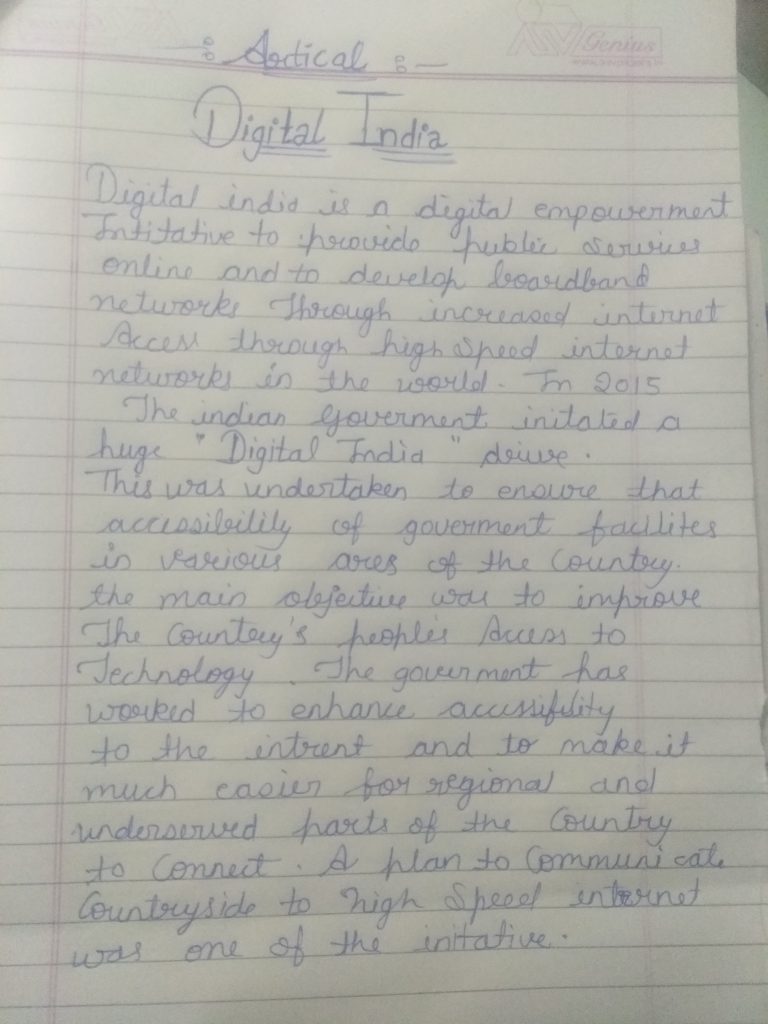 :- Artical :-
Genius
Digital India
Digital india is a digital empowerment
Intitative to provide public services
online and to develop boardband
networks Through increased internet
Access through high speed internet
networks in the world. In 2015
The indian Goverment initated a
huge "Digital India" drive.
This was undertaken to ensure that
accessibility of goverment facilites
in various ares of the Country.
the main objective was to improve
The Country's people's Access to
Technology. The goverment has
worked to enhance accessibility
to the intrent and to make it
much easier for regional and
underserved parts of the Country
to Connect. A plan to Communicate
Countryside to high speed internet
was one of the initative.